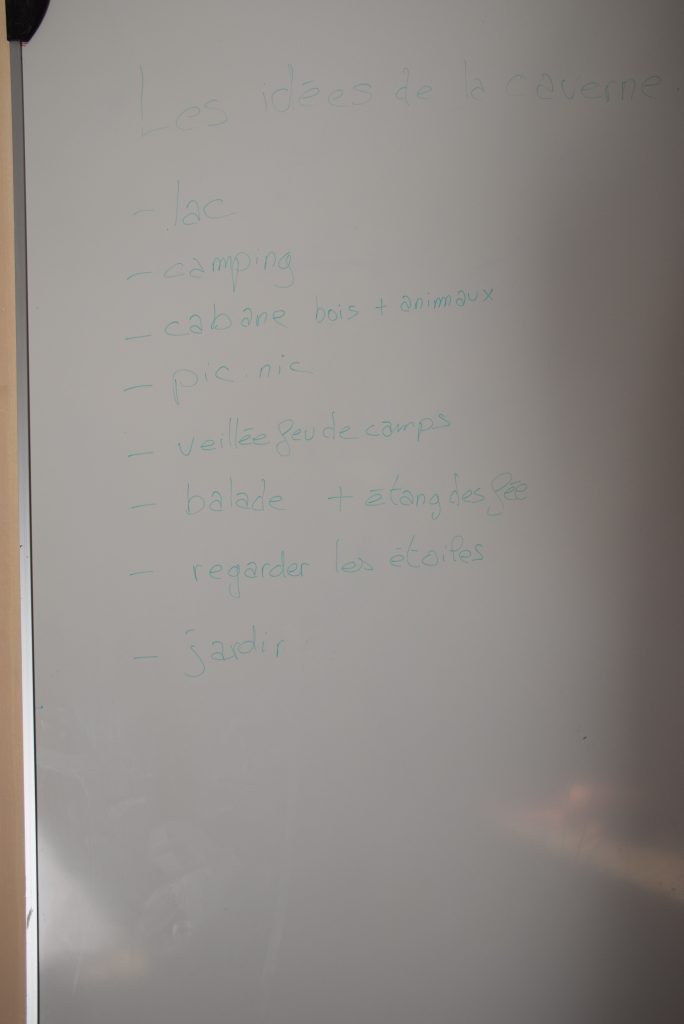 Les idées de la caverne.
- lac
- camping
- cabane bois + animaux
- pic.nic
- veillée feu de camps
- balade + étang des fée
- regarder les étoiles
- jardir